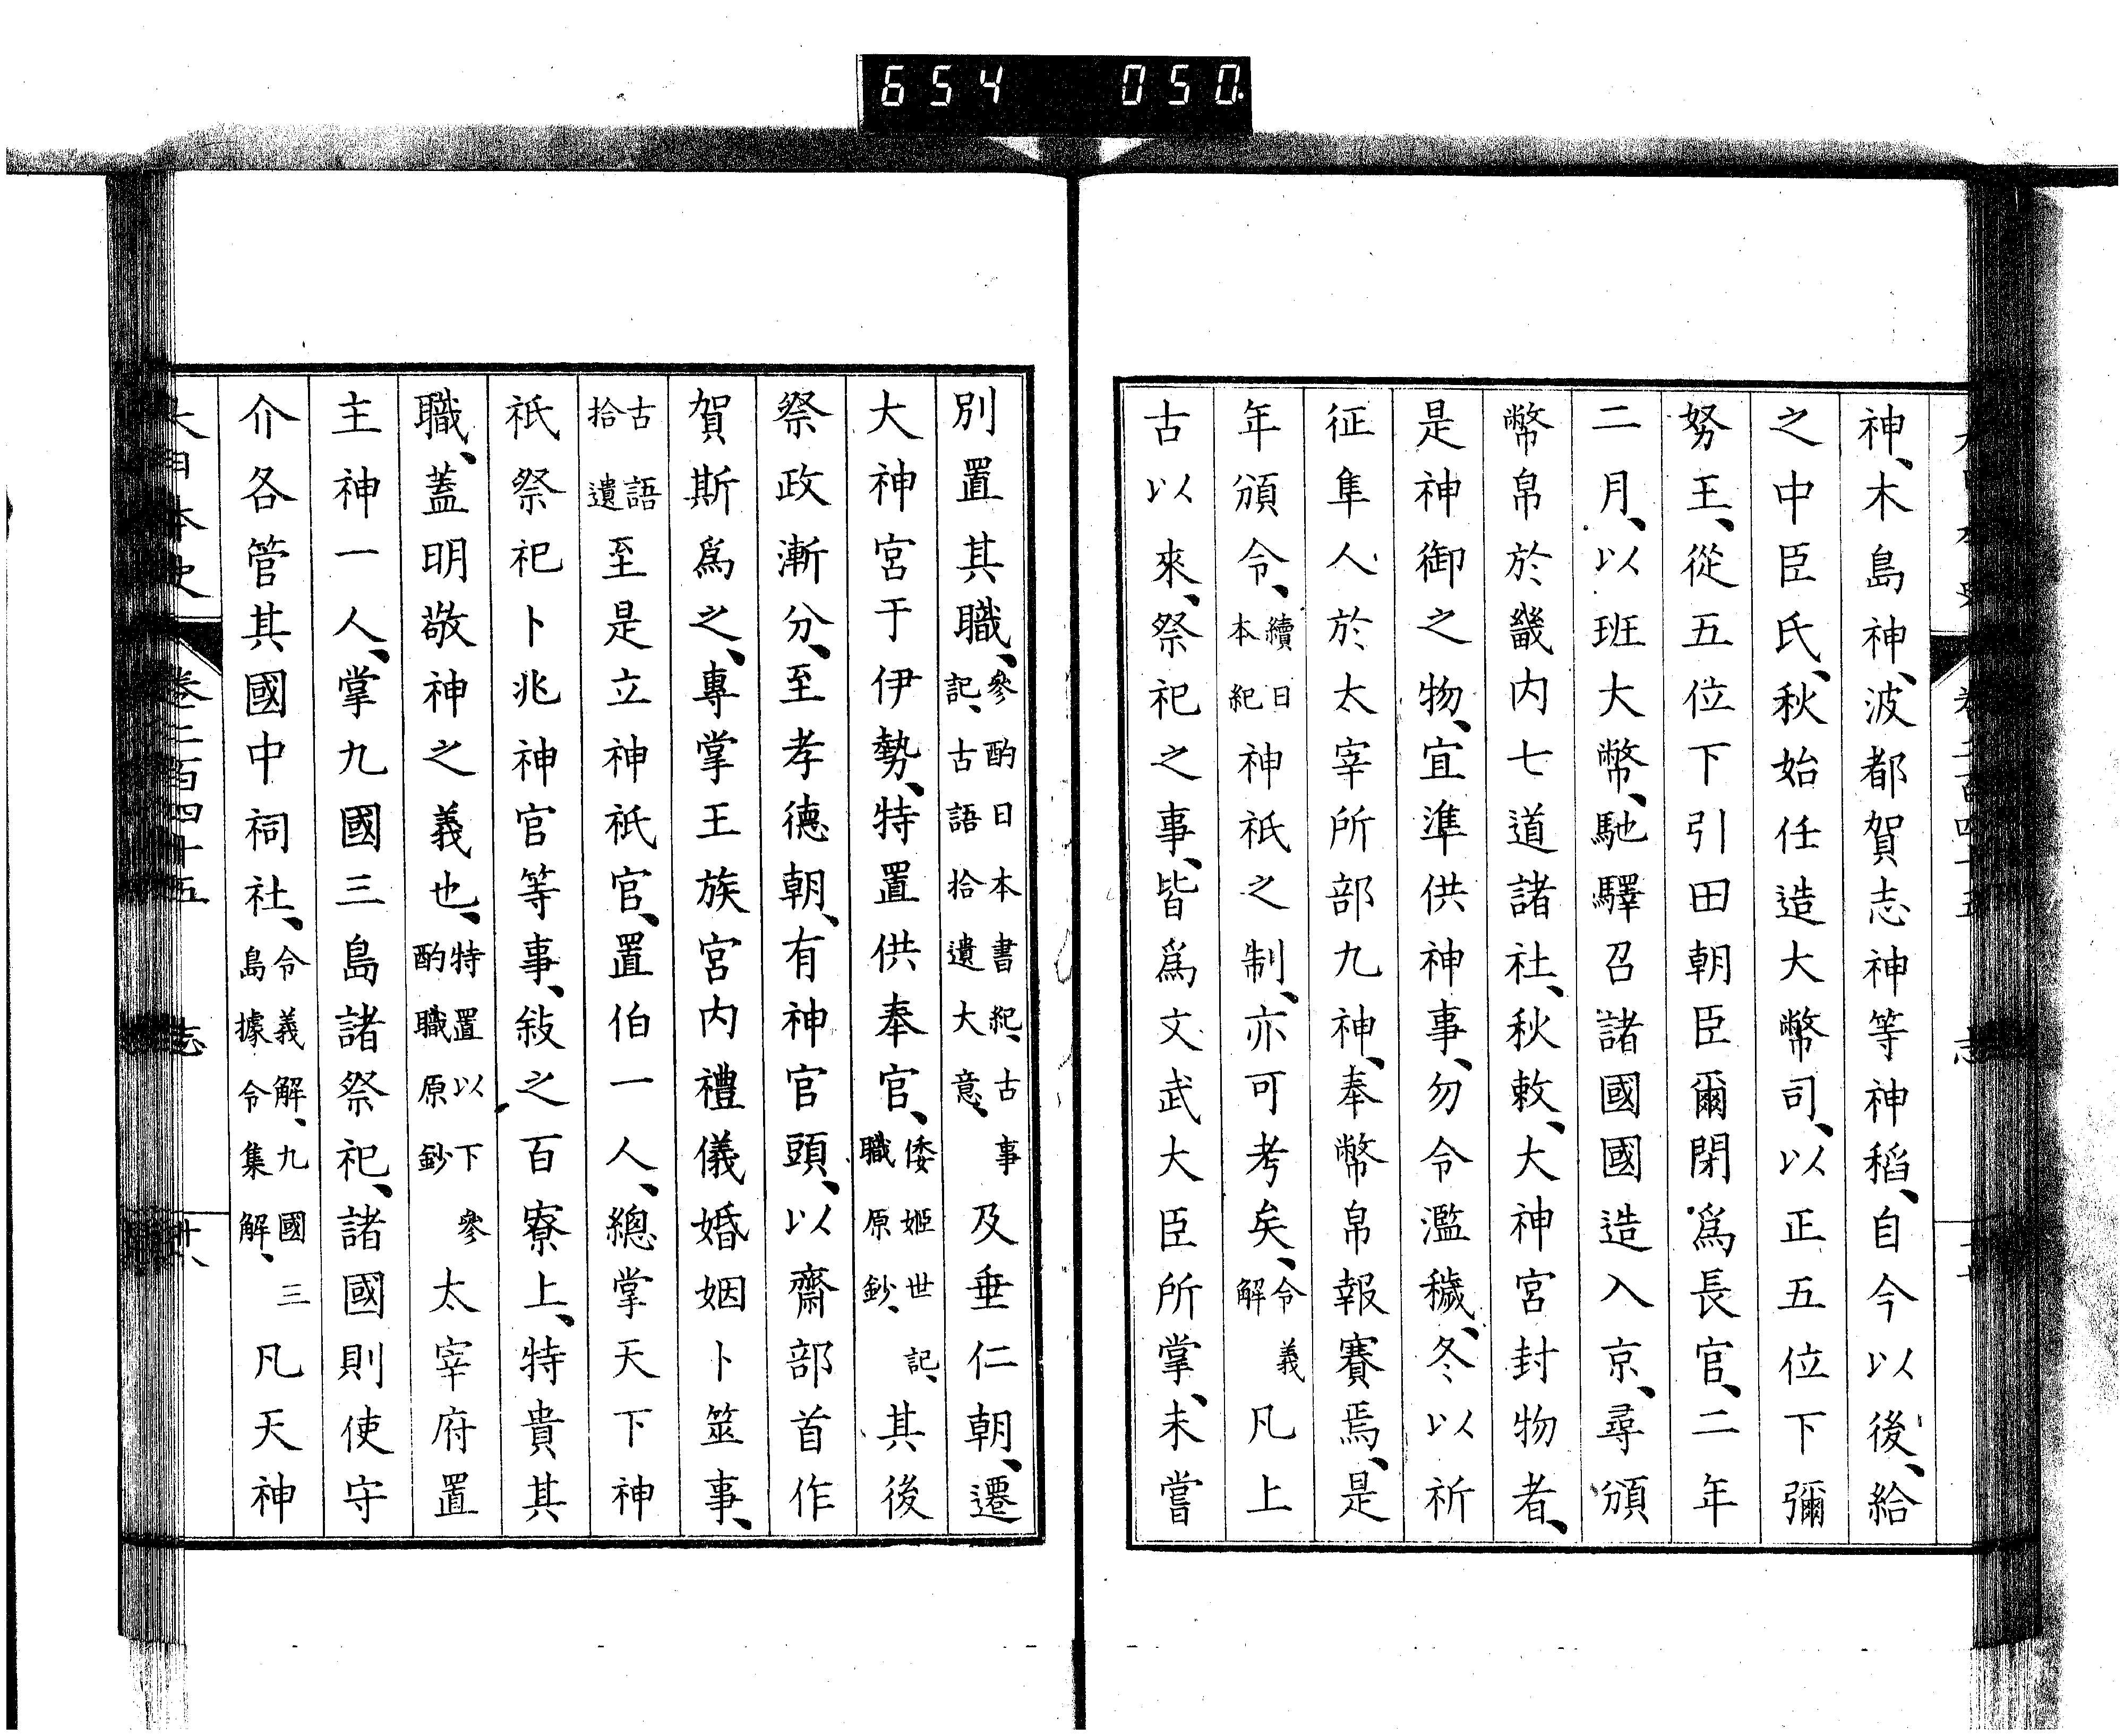 654 050
神、木島神、波都賀志神等神稻、自今以後、給
之中臣氏、秋始任造大幣司、以正五位下彌
努王、從五位下引田朝臣爾閇爲長官、二年
二月、以班大幣、馳驛召諸國國造入京、尋頒
幣帛於畿内七道諸社、秋敕、大神宮封物者、
是神御之物、宜準供神事、勿令濫穢、冬以祈
征隼人於太宰所部九神、奉幣帛報賽焉、是
年頒令、續日本紀神祇之制、亦可考矣、令義解凡上
古以來、祭祀之事、皆爲文武大臣所掌、未嘗
別置其職、參酌日本書紀、古事記、古語拾遺大意、及垂仁朝、遷
大神宮于伊勢、特置供奉官、倭姬世記、職原鈔、其後
祭政漸分、至孝德朝、有神官頭、以齋部首作
賀斯爲之、專掌王族宮内禮儀婚姻卜筮事、
古語拾遺至是立神祇官、置伯一人、總掌天下神
祇祭祀卜兆神官等事、敍之百寮上、特貴其
職、蓋明敬神之義也、特置以下參酌職原鈔太宰府置
主神一人、掌九國三島諸祭祀、諸國則使守
介各管其國中祠社、令義解、九國三島據令集解、凡天神
大日本史 卷二百四十五 志